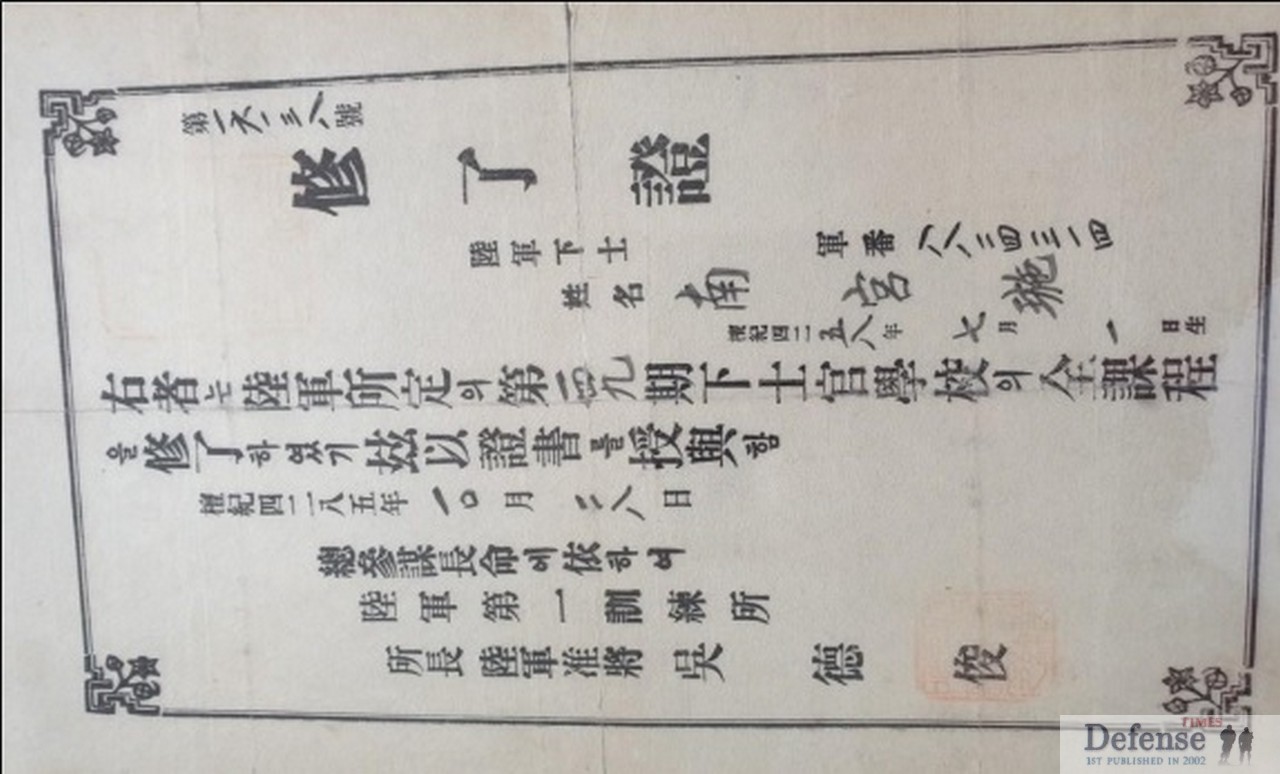 第一六一三八號
修了證
陸軍下士 軍番 八八三四三一四
姓名 南宮
檀紀四二五八年 七月 一日生
右者는 陸軍所定의 第 期下士官學校의 全課程
을 修了하였기 玆以證書를 授與함
檀紀四二八五年 一○月 二八日
總參謀長命에 依하여
陸軍第一訓練所
所長 陸軍准將 吳德俊
TIMES
Defense
1ST PUBLISHED IN 2002